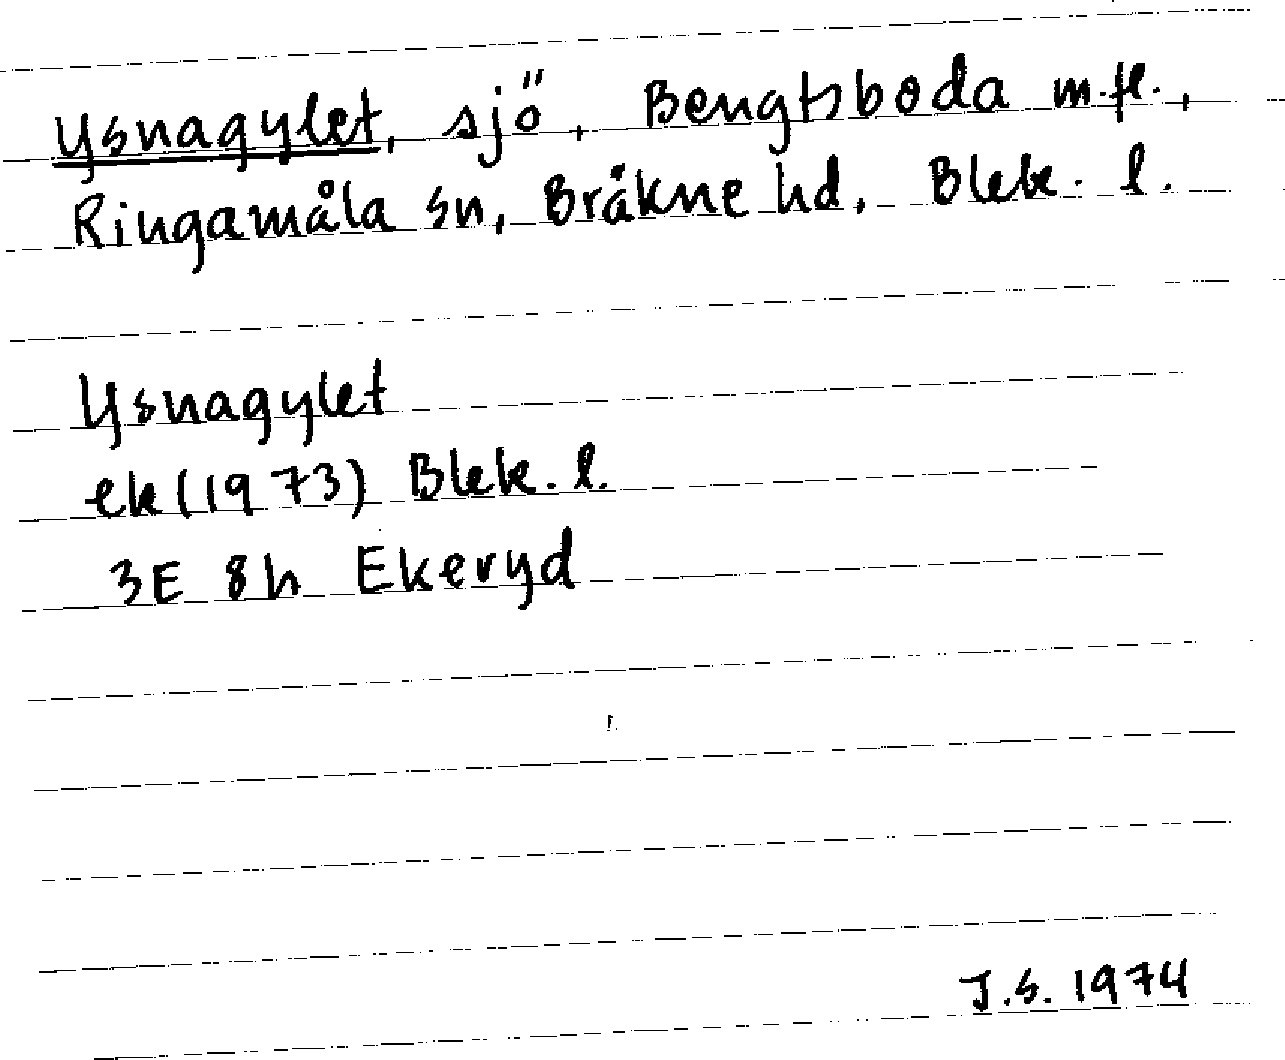 Ysnagylet, sjö, Bengtsboda m.fl.,
Ringamåla sn, Bräkne hd, Blek. l.
Ysnagylet
ek (1973) Blek. l.
3E 8h Ekeryd
J.S. 1974